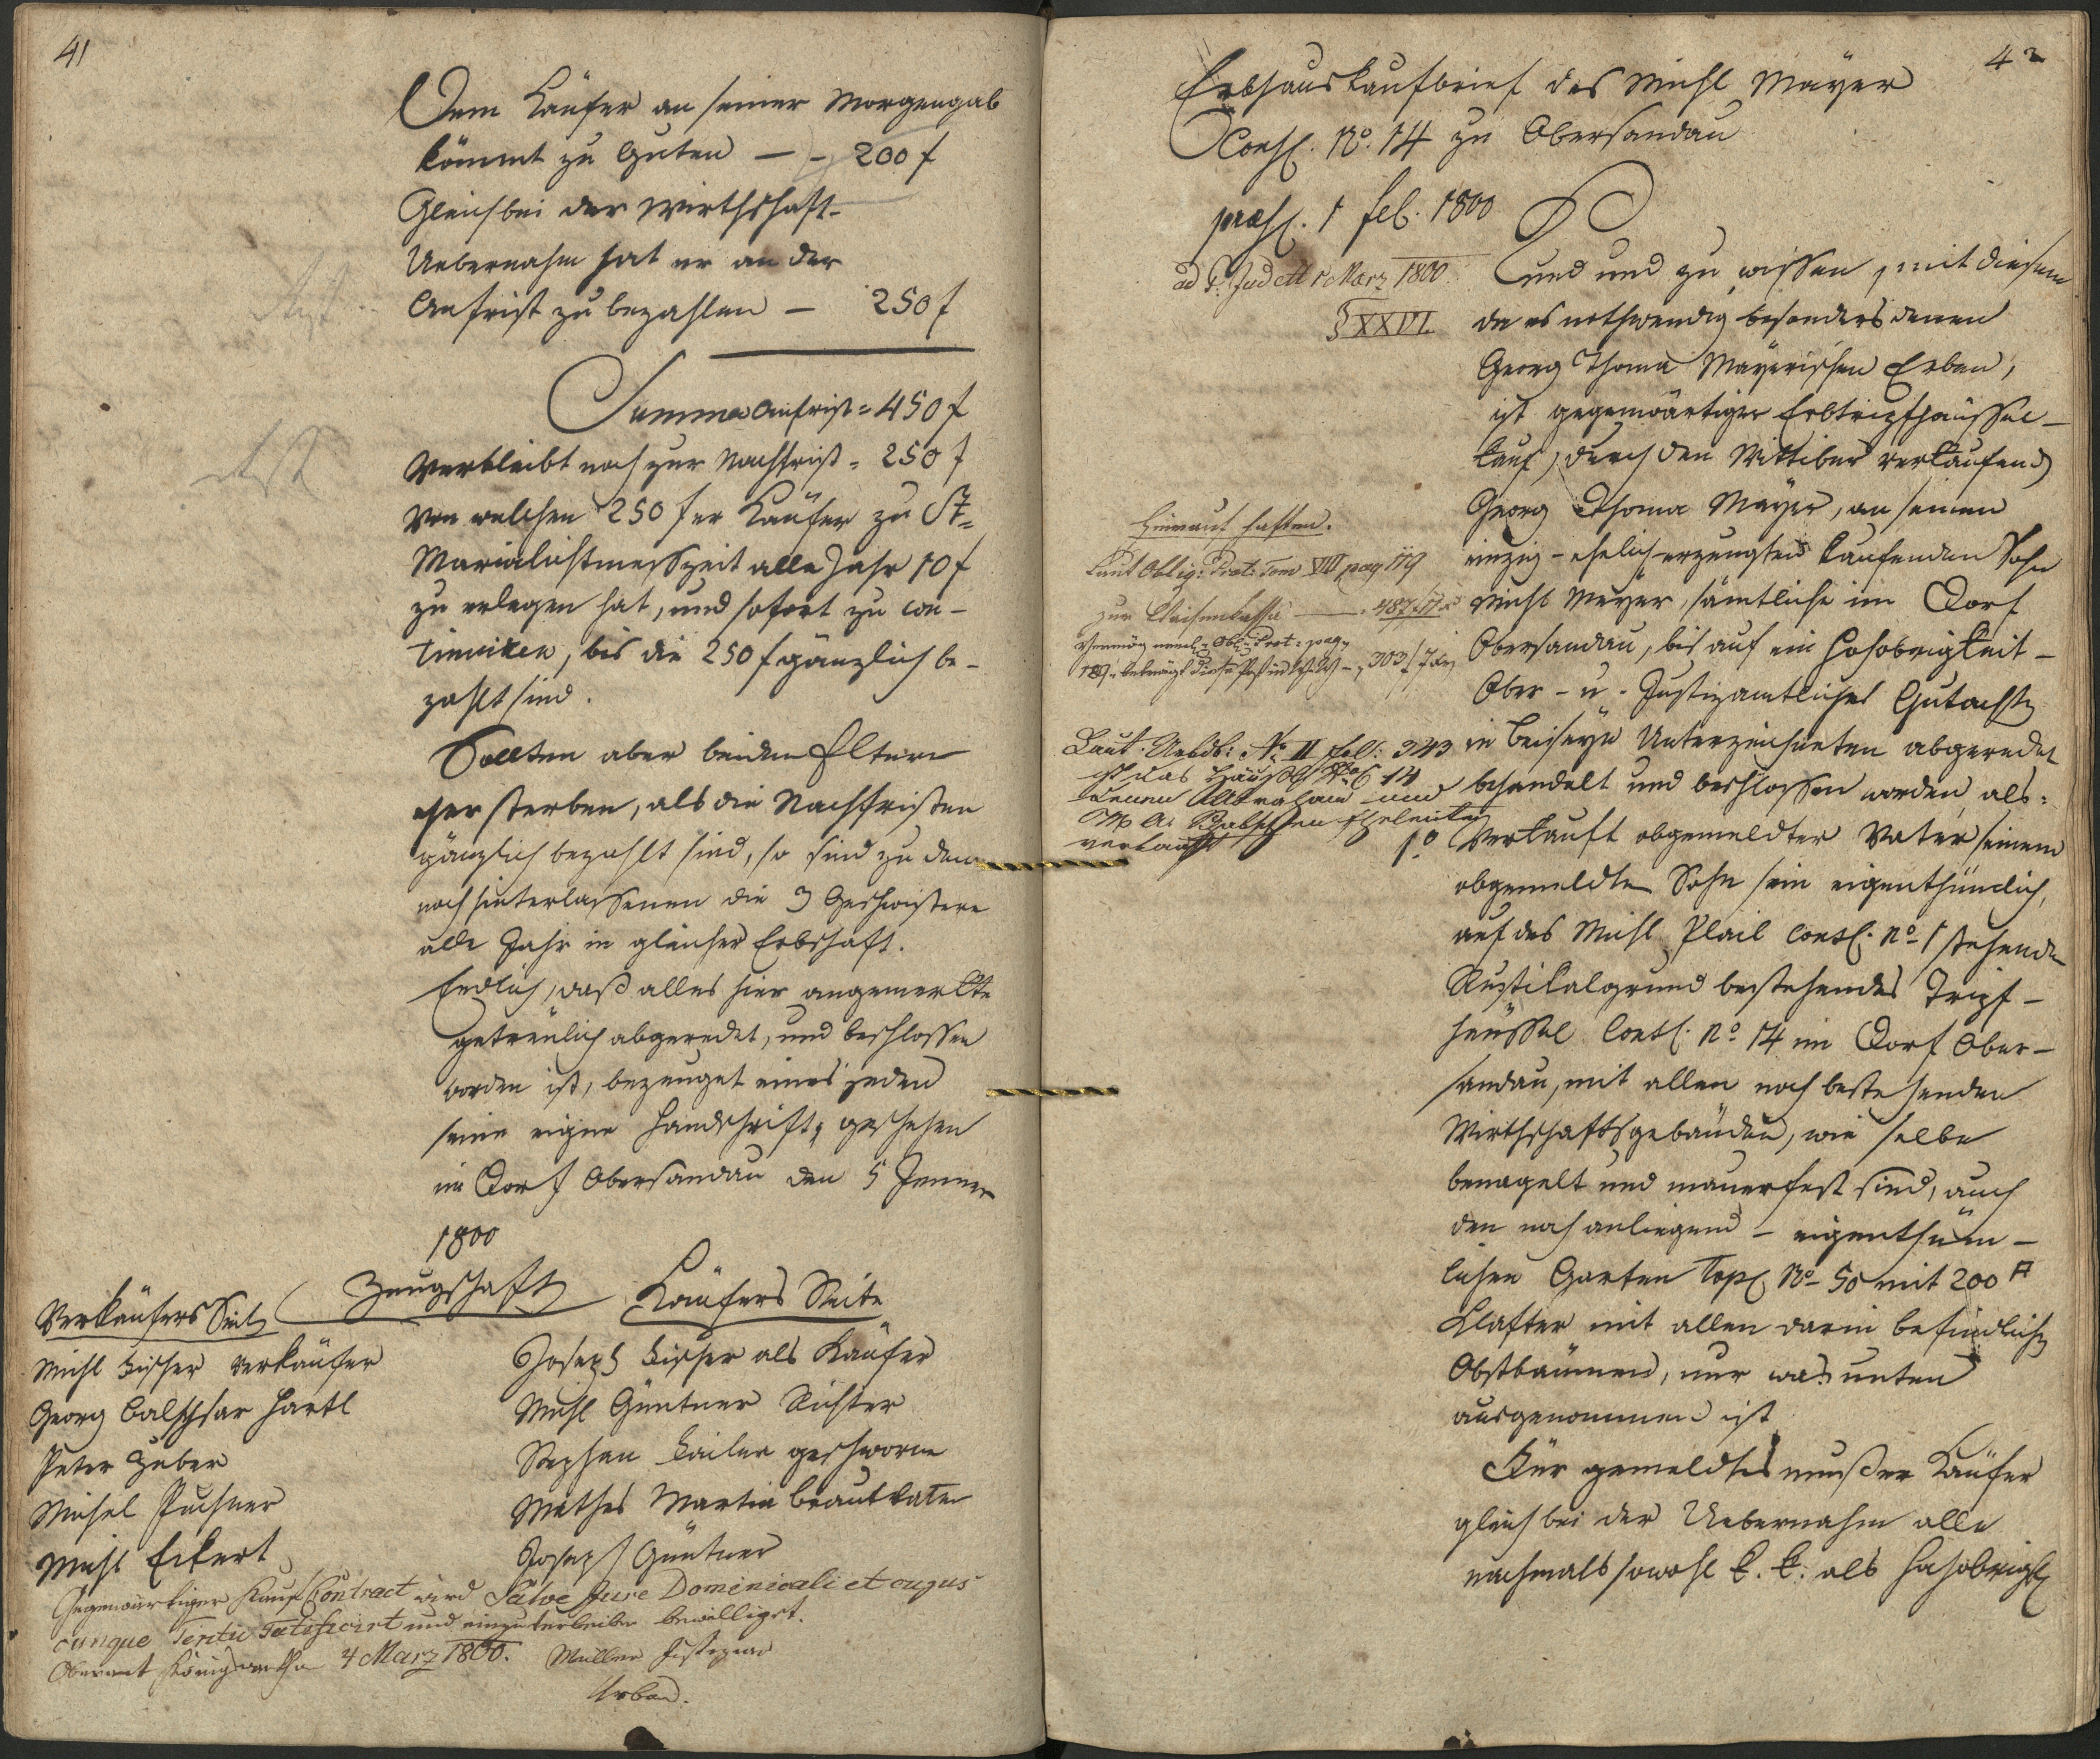 41
Dem Käufer an seiner Morgengab
kömmt zu Guten — — 200 f
Gleich bei der Wirthschaft-
Uebernahm hat er an der
Anfrist zu bezahlen — 250 f
Summa Anfrist = 450 f
Verbleibt noch zur Nachfrist = 250 f
Von welchen 250 f er Käufer zu St=
Marialichtmeßzeit alle Jahr 10 f
zu erlegen hat, und sofort zu con-
tinuiren, bis die 250 f gänzlich be-
zahlt sind.
Sollten aber beiden Eltern
eher sterben, als die Nachfristen
gänzlich bezahlt sind, so sind zu den
noch hinterlassenen die 3 Geschwistere
alle Jahr in gleicher Erbschaft.
Endlich, daß alles hier angemerkte
getreulich abgeredet, und beschlossen
worden ist, bezeuget eines jeden
seine eigne Handschrift, geschehen
im Dorf Obersandau den 5 Jenner
1800
Zeugschaft
Verkäufers Seits
Michl Fischer Verkäufer
Georg Balthasar Hartl
Peter Huber
Michel Puchner
Michl Eckert
Käufers Seite
Joseph Fischer als Käufer
Michl Güntner Richter
Stephan Failer geschworne
Mathes Martin Brautvater
Joseph Güntner
Gegenwärtiger Kauf Contract wird Salvo Jure Dominicali et cujus
cunque Tertii ratificirt und einzuverleiben bewilliget.
Oberamt Königswarth 4 Marz 1800. Müller Justiziar
Urban.
42
Erbhauskaufbrief des Michl Mayer
Conss. No. 14 zu Obersandau
praes. 1 feb. 1800
ad P. Jud. 1 Marz 1800
§ XXVI.
Kund und zu wissen, mit diesem
da es nothwendig besonders denen
Georg Thoma Mayerischen Erben,
ist gegenwärtiger Erbtripfhäussel-
kauf, durch den Wittiber verkaufend
Georg Thoma Mayer, an seinen
einzig-ehelich erzeugten kaufenden Sohn
Michl Meyer, sämtliche im Dorf
Obersandau, bis auf ein Hochobrigkeit-
Ober- u. Justizamtliches Gutachten
in Beiseyn Unterzeichneten abgeredet
behandelt und beschlossen worden als:
Hierauf haften.
Laut Oblig: Prot: Tom VII pag 119
zur Waisenkassa — 487 f
Laut Urkdb: No II fol: 343
ist das Häußl No C 14
denen Abraham und
M. A. Eheleuten
verkauft
1o Verkauft obgemeldter Vater seinem
obgemeldten Sohn sein eigenthümlich,
auf des Michl Plail Consc. No 1 stehende
Rustikalgrund bestehendes Tripf-
häussel Consc. No 14 im Dorf Ober-
sandau, mit allen noch bestehenden
Wirthschaftsgebäuden, wie selbe
benagelt und mauerfest sind, auch
den noch anliegend- eigenthüm-
lichen Garten Top. No 50 mit 200 □
Klafter mit allen darin befindlichen
Obstbäumen, nur was unten
ausgenommen ist
Für gemeldtes muß er Käufer
gleich bei der Uebernahm alle
nachmals sowohl k. k. als hochobrigk.